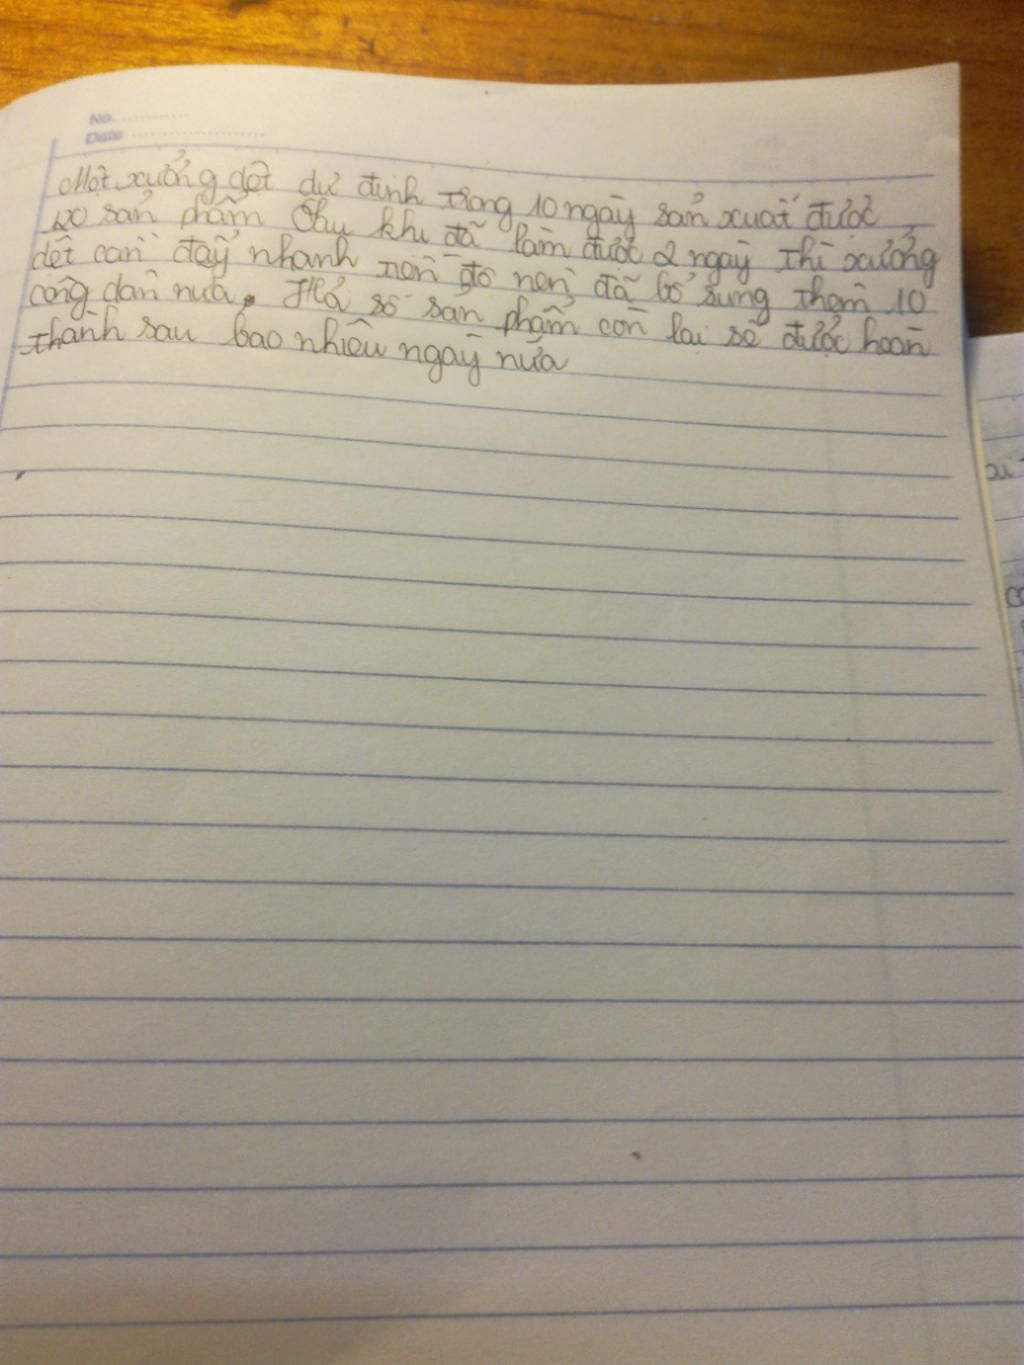 No. ............
Date .......................
Một xưởng dệt dự định trong 10 ngày sản xuất được
20 sản phẩm Sau khi đã làm được 2 ngày thì xưởng
dệt cần đẩy nhanh tiến độ nên đã bổ sung thêm 10
công dân nữa. Hỏi số sản phẩm còn lại sẽ được hoàn
thành sau bao nhiêu ngày nữa